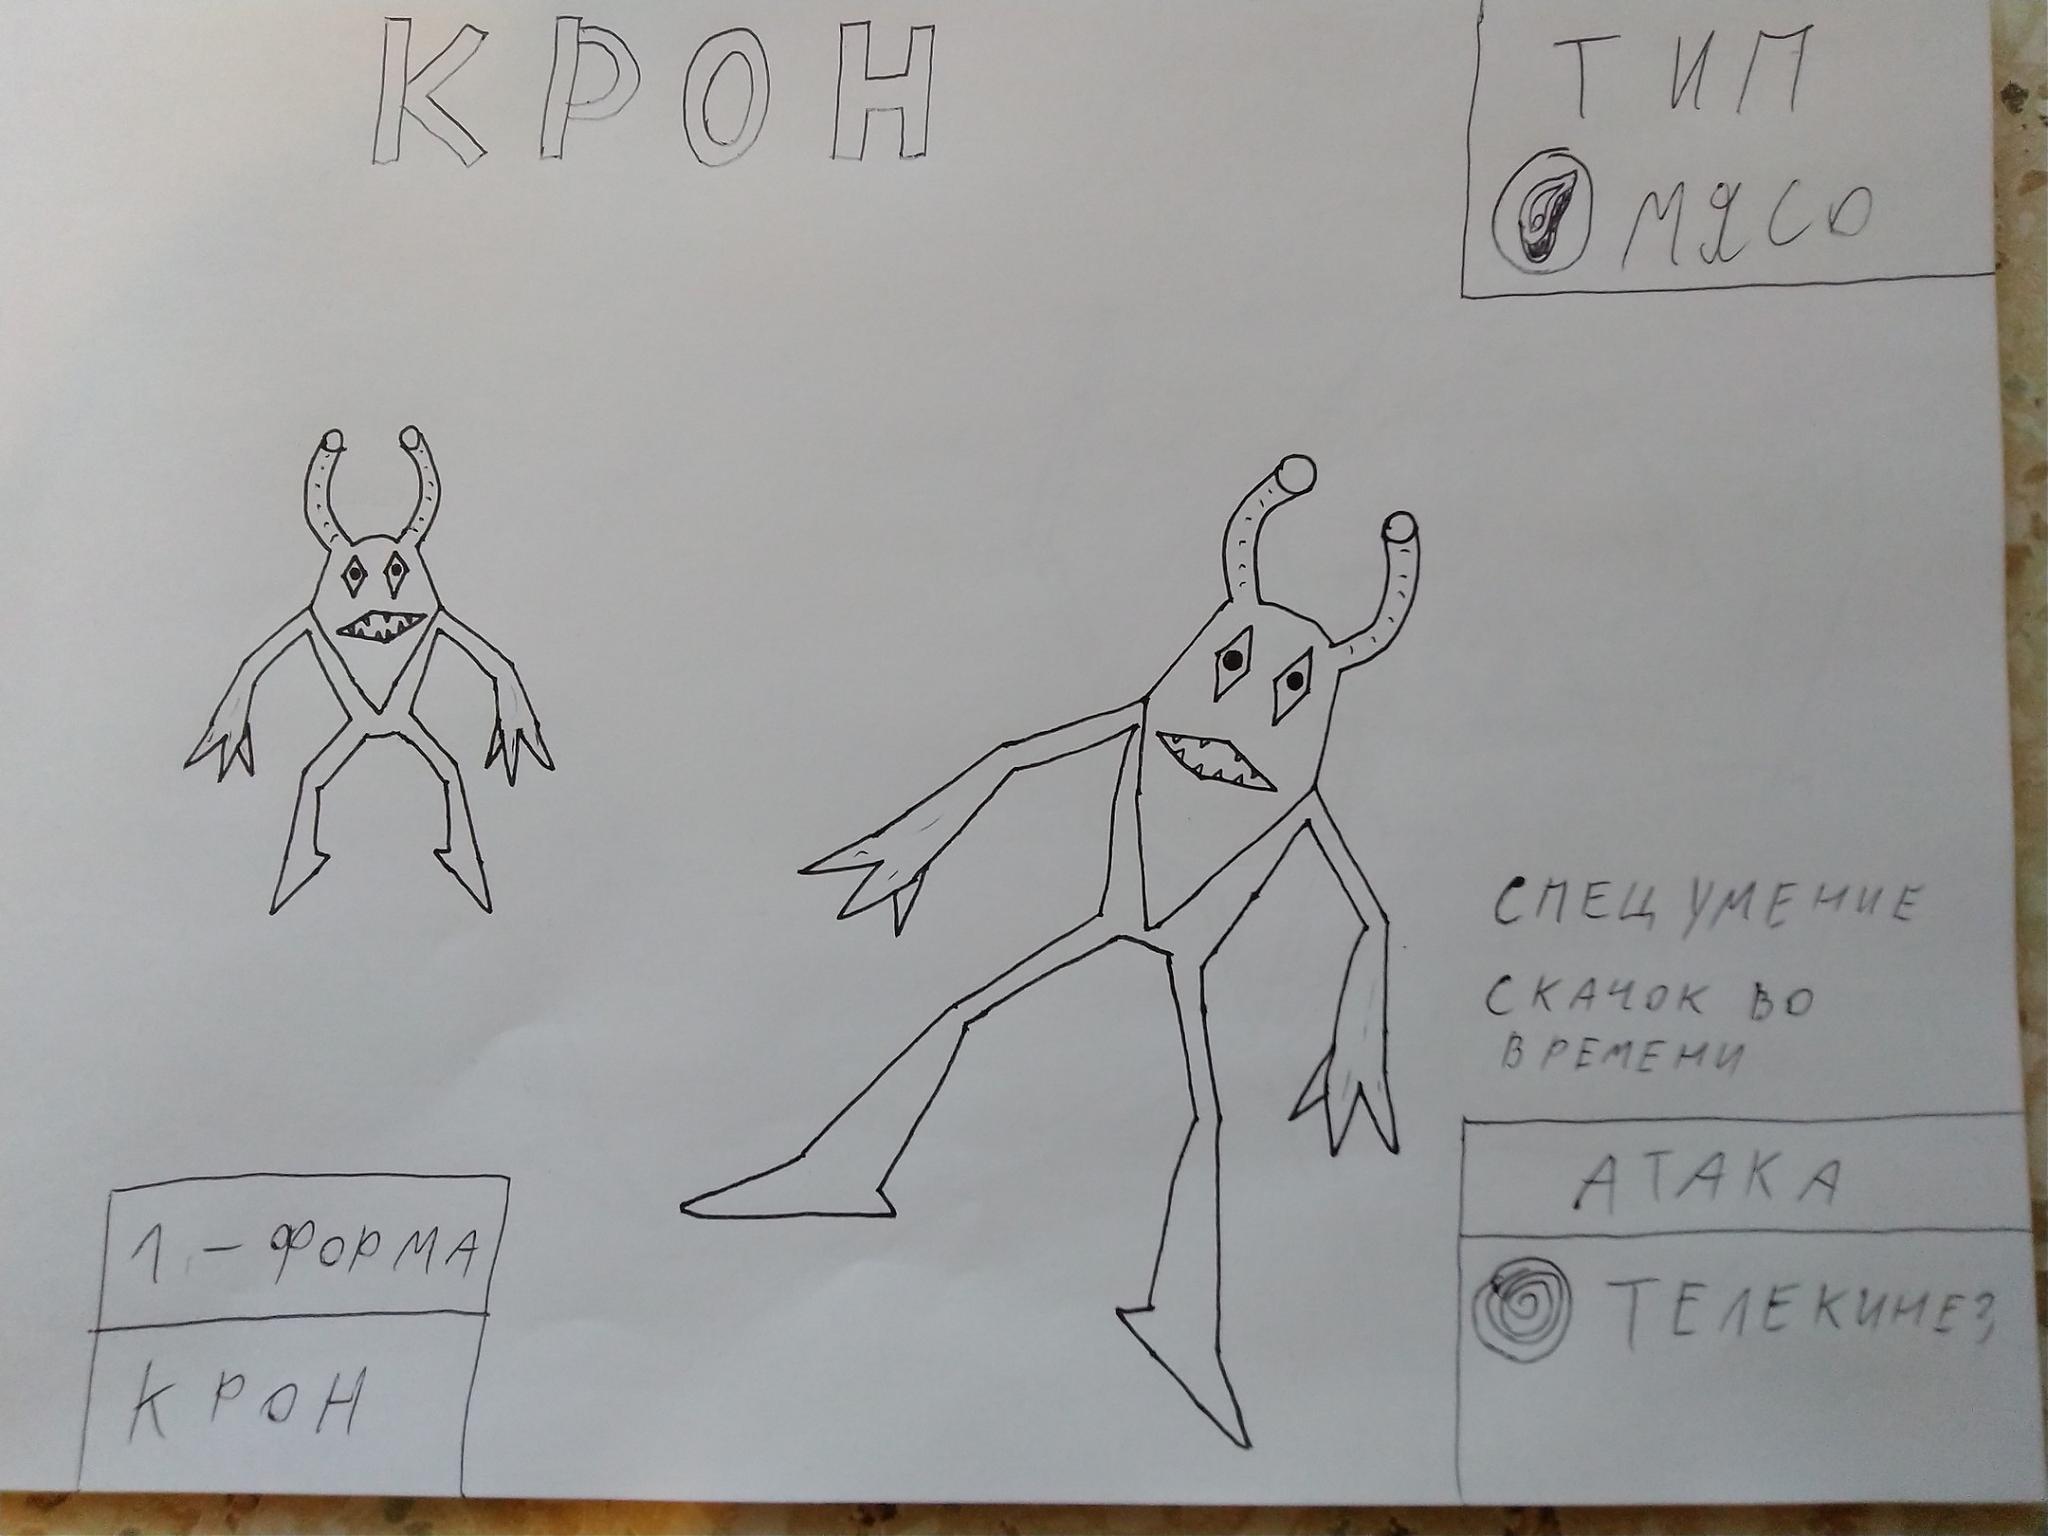 КРОН
ТИП
МЯСО
СПЕЦ УМЕНИЕ
СКАЧОК ВО
ВРЕМЕНИ
АТАКА
ТЕЛЕКИНЕЗ
1.-ФОРМА
КРОН